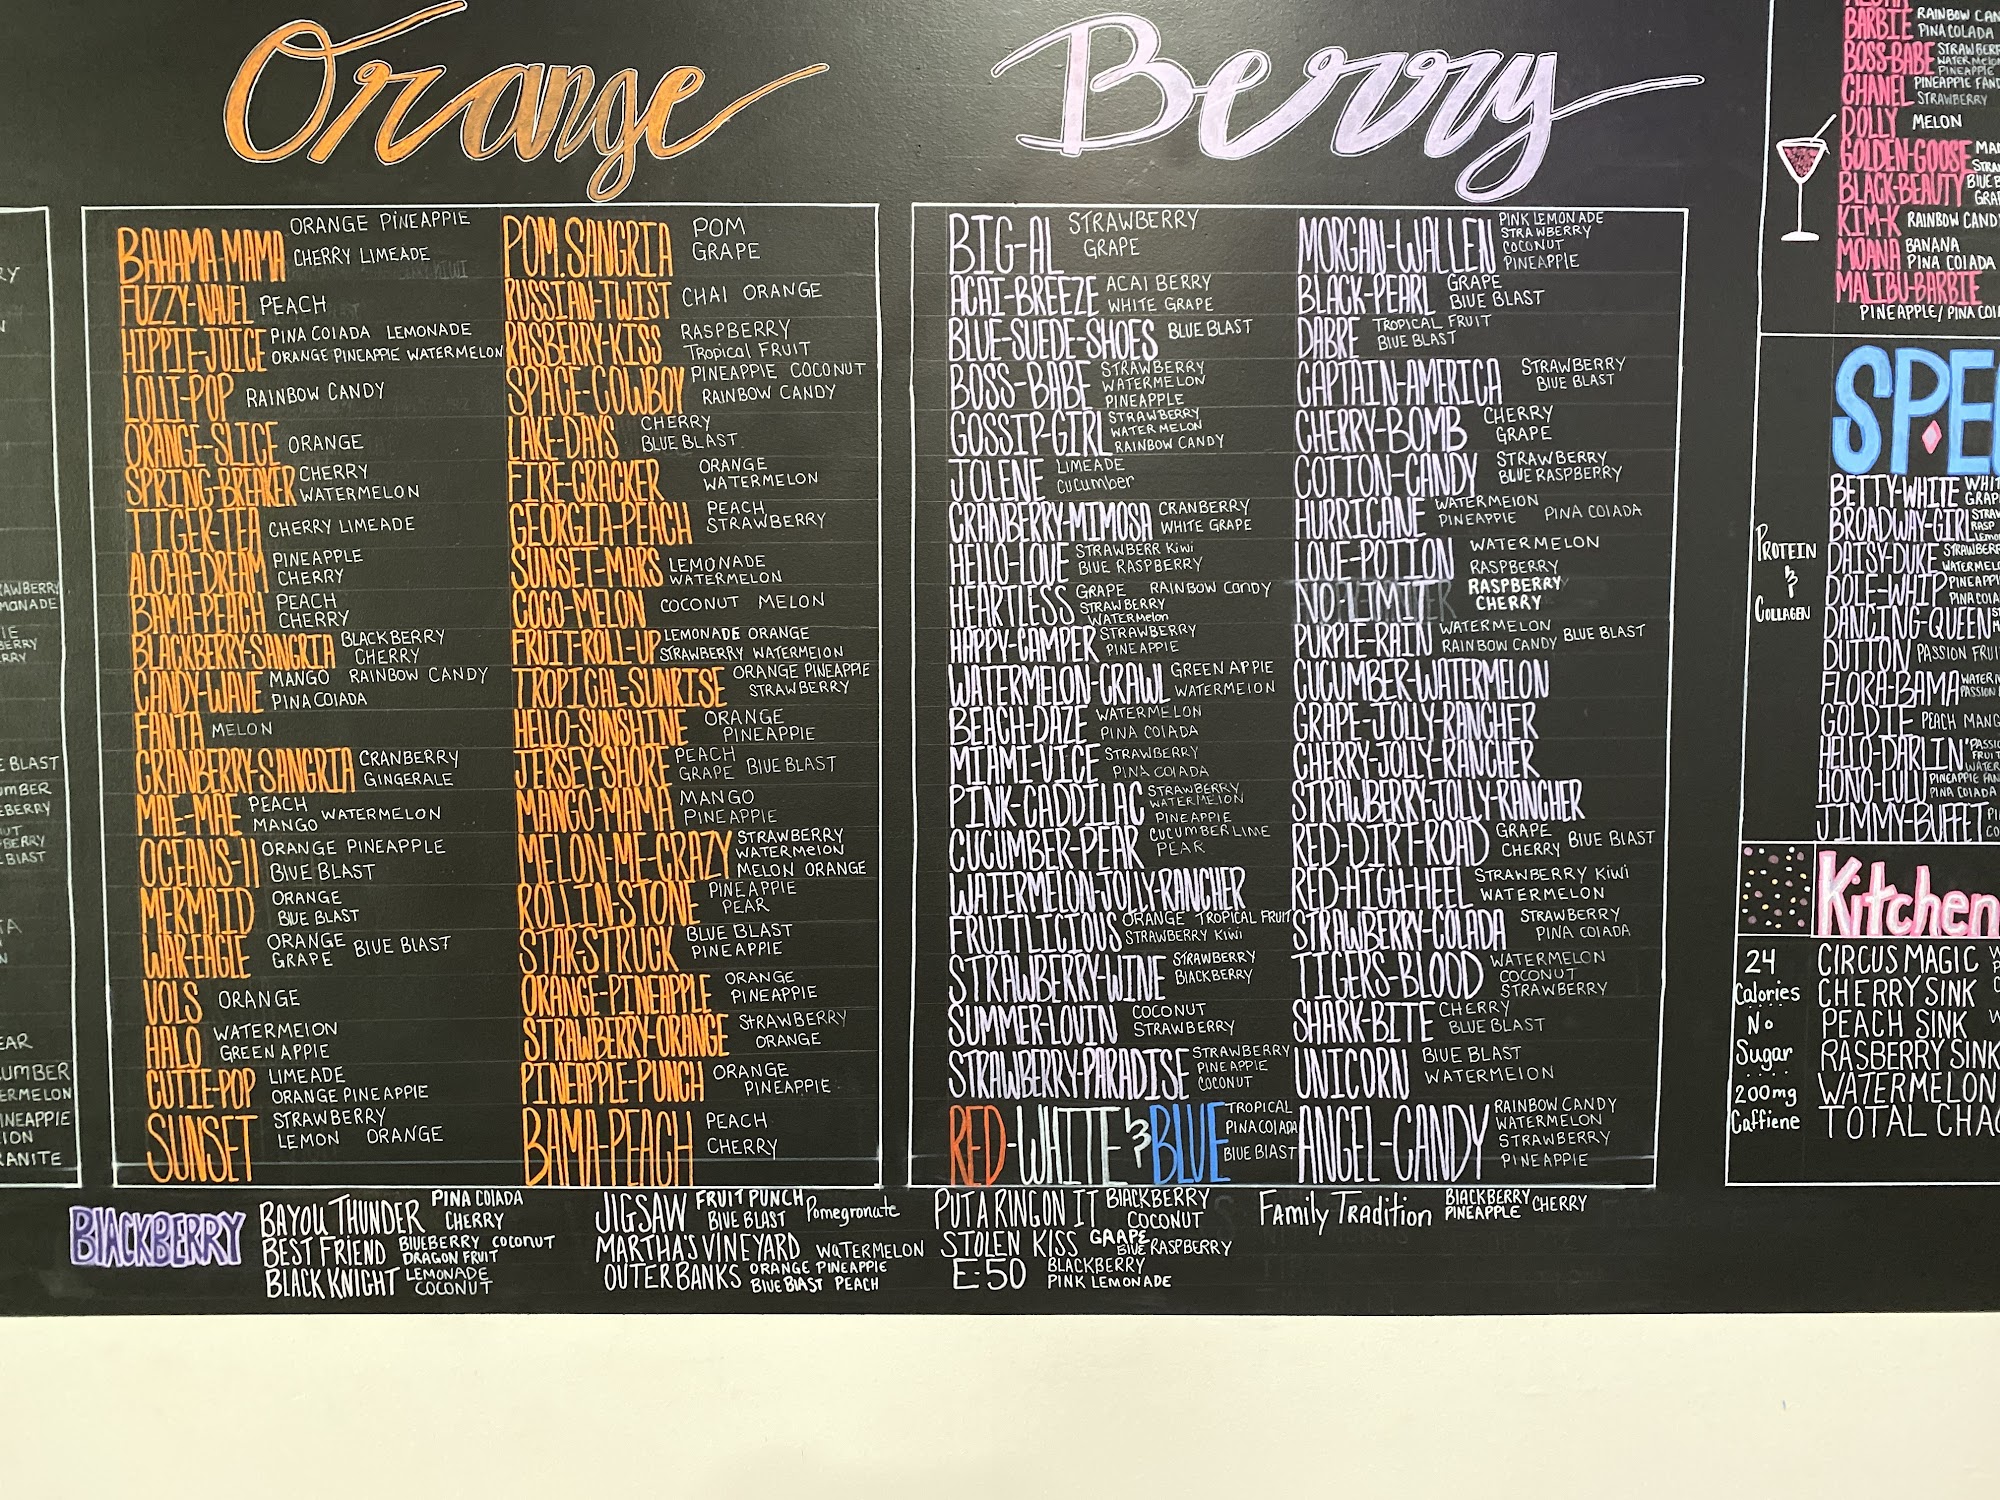 Orange
BAHAMA-MAMA ORANGE PINEAPPLE
CHERRY LIMEADE
FUZZY-NAVEL PEACH
HIPPIE-JUICE PINA COLADA LEMONADE
ORANGE PINEAPPLE WATERMELON
LOLLI-POP RAINBOW CANDY
ORANGE-SLICE ORANGE
SPRING-BREAKER CHERRY
WATERMELON
TIGER-TEA CHERRY LIMEADE
ALOHA-DREAM PINEAPPLE
CHERRY
BAMA-PEACH PEACH
CHERRY
BLACKBERRY-SANGRIA BLACKBERRY
CHERRY
CANDY-WAVE MANGO RAINBOW CANDY
PINA COLADA
FANTA MELON
CRANBERRY-SANGRIA CRANBERRY
GINGERALE
MAE-MAE PEACH WATERMELON
MANGO
OCEANS-11 ORANGE PINEAPPLE
BLUE BLAST
MERMAID ORANGE
BLUE BLAST
WAR-EAGLE ORANGE BLUE BLAST
GRAPE
VOLS ORANGE
HALO WATERMELON
GREEN APPLE
CUTIE-POP LIMEADE
ORANGE PINEAPPLE
SUNSET STRAWBERRY
LEMON ORANGE
POM.SANGRIA POM
GRAPE
RUSSIAN-TWIST CHAI ORANGE
RASBERRY-KISS RASPBERRY
TROPICAL FRUIT
SPACE-COWBOY PINEAPPLE COCONUT
RAINBOW CANDY
LAKE-DAYS CHERRY
BLUE BLAST
FIRE-CRACKER ORANGE
WATERMELON
GEORGIA-PEACH PEACH
STRAWBERRY
SUNSET-MARS LEMONADE
WATERMELON
COCO-MELON COCONUT MELON
FRUIT-ROLL-UP LEMONADE ORANGE
STRAWBERRY WATERMELON
TROPICAL-SUNRISE ORANGE PINEAPPLE
STRAWBERRY
HELLO-SUNSHINE ORANGE
PINEAPPLE
JERSEY-SHORE PEACH
GRAPE BLUE BLAST
MANGO-MAMA MANGO
PINEAPPLE
MELON-ME-CRAZY STRAWBERRY
WATERMELON
MELON ORANGE
ROLLIN-STONE PINEAPPLE
PEAR
STAR-STRUCK BLUE BLAST
PINEAPPLE
ORANGE-PINEAPPLE ORANGE
PINEAPPLE
STRAWBERRY-ORANGE STRAWBERRY
ORANGE
PINEAPPLE-PUNCH ORANGE
PINEAPPLE
BAMA-PEACH PEACH
CHERRY
Berry
BIG-AL STRAWBERRY
GRAPE
ACAI-BREEZE ACAI BERRY
WHITE GRAPE
BLUE-SUEDE-SHOES BLUE BLAST
BOSS-BABE STRAWBERRY
WATERMELON
PINEAPPLE
GOSSIP-GIRL STRAWBERRY
WATERMELON
RAINBOW CANDY
JOLENE LIMEADE
CUCUMBER
CRANBERRY-MIMOSA CRANBERRY
WHITE GRAPE
HELLO-LOVE STRAWBERR KIWI
BLUE RASPBERRY
HEARTLESS GRAPE RAINBOW CANDY
STRAWBERRY
WATERMELON
HAPPY-CAMPER STRAWBERRY
PINEAPPLE
WATERMELON-CRAWL GREEN APPLE
WATERMELON
BEACH-DAZE WATERMELON
PINA COLADA
MIAMI-VICE STRAWBERRY
PINA COLADA
PINK-CADDILAC STRAWBERRY
WATERMELON
PINEAPPLE
CUCUMBER-PEAR CUCUMBER LIME
PEAR
WATERMELON-JOLLY-RANCHER
FRUITLICIOUS ORANGE TROPICAL FRUIT
STRAWBERRY KIWI
STRAWBERRY-WINE STRAWBERRY
BLACKBERRY
SUMMER-LOVIN COCONUT
STRAWBERRY
STRAWBERRY-PARADISE STRAWBERRY
PINEAPPLE
COCONUT
RED-WHITE & BLUE TROPICAL
PINA COLADA
BLUE BLAST
MORGAN-WALLEN PINK LEMONADE
STRAWBERRY
COCONUT
PINEAPPLE
BLACK-PEARL GRAPE
BLUE BLAST
DABRE TROPICAL FRUIT
BLUE BLAST
CAPTAIN-AMERICA STRAWBERRY
BLUE BLAST
CHERRY-BOMB CHERRY
GRAPE
COTTON-CANDY STRAWBERRY
BLUE RASPBERRY
HURRICANE WATERMELON
PINEAPPLE PINA COLADA
LOVE-POTION WATERMELON
RASPBERRY
NO-LIMIT RASPBERRY
CHERRY
PURPLE-RAIN WATERMELON
RAINBOW CANDY BLUE BLAST
CUCUMBER-WATERMELON
GRAPE-JOLLY-RANCHER
CHERRY-JOLLY-RANCHER
STRAWBERRY-JOLLY-RANCHER
RED-DIRT-ROAD GRAPE
CHERRY BLUE BLAST
RED-HIGH-HEEL STRAWBERRY KIWI
WATERMELON
STRAWBERRY-COLADA STRAWBERRY
PINA COLADA
TIGERS-BLOOD WATERMELON
COCONUT
STRAWBERRY
SHARK-BITE CHERRY
BLUE BLAST
UNICORN BLUE BLAST
WATERMELON
ANGEL-CANDY RAINBOW CANDY
WATERMELON
STRAWBERRY
PINEAPPLE
BLACKBERRY
BAYOU THUNDER PINA COLADA
CHERRY
BEST FRIEND BLUEBERRY COCONUT
DRAGON FRUIT
BLACK KNIGHT LEMONADE
COCONUT
JIGSAW FRUIT PUNCH
BLUE BLAST Pomegronate
MARTHA'S VINEYARD WATERMELON
OUTER BANKS ORANGE PINEAPPLE
BLUE BLAST PEACH
PUT A RING ON IT BLACKBERRY
COCONUT
STOLEN KISS GRAPE
BLUE RASPBERRY
E-50 BLACKBERRY
PINK LEMONADE
FAMILY TRADITION BLACKBERRY CHERRY
PINEAPPLE
BARBIE RAINBOW CAN
PINA COLADA
BOSS-BABE STRAWBERR
WATERMELON
PINEAPPLE
CHANEL PINEAPPLE
STRAWBERRY
DOLLY MELON
GOLDEN-GOOSE MA
STRA
BLACK-BEAUTY BLUE B
GRA
KIM-K RAINBOW CANDY
MOANA BANANA
PINA COLADA
MALIBU-BARBIE
PINEAPPLE/PINA COL
SPE
PROTEIN
&
COLLAGEN
BETTY-WHITE WHIT
GRAP
BROADWAY-GIRL STRAW
RASP
LEMO
DAISY-DUKE STRAWBERR
WATERMEL
DOLE-WHIP PINEAPPL
PINA COLA
DANCING-QUEEN
DUTTON PASSION FRUI
FLORA-BAMA WATER
PASSION
GOLDIE PEACH MANG
HELLO-DARLIN' PASSIO
FRUIT
WATER
HONO-LULU PINEAPPLE
PINA COLADA
JIMMY-BUFFET
Kitchen
24
Calories
No
Sugar
200mg
Caffiene
CIRCUS MAGIC
CHERRY SINK
PEACH SINK
RASBERRY SINK
WATERMELON
TOTAL CHA